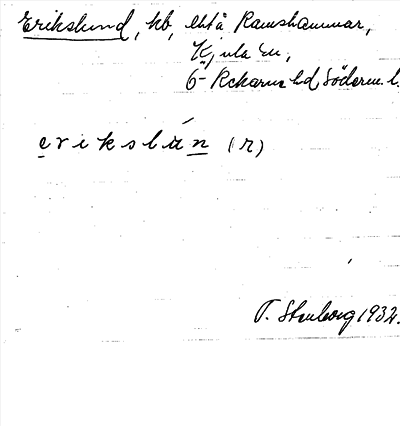 Erikslund, hb, ehtä Ramshammar,
Kjula sn,
Ö-Rekarne hd, Söderm. l.
erikslún (r)
T. Stenborg 1932.